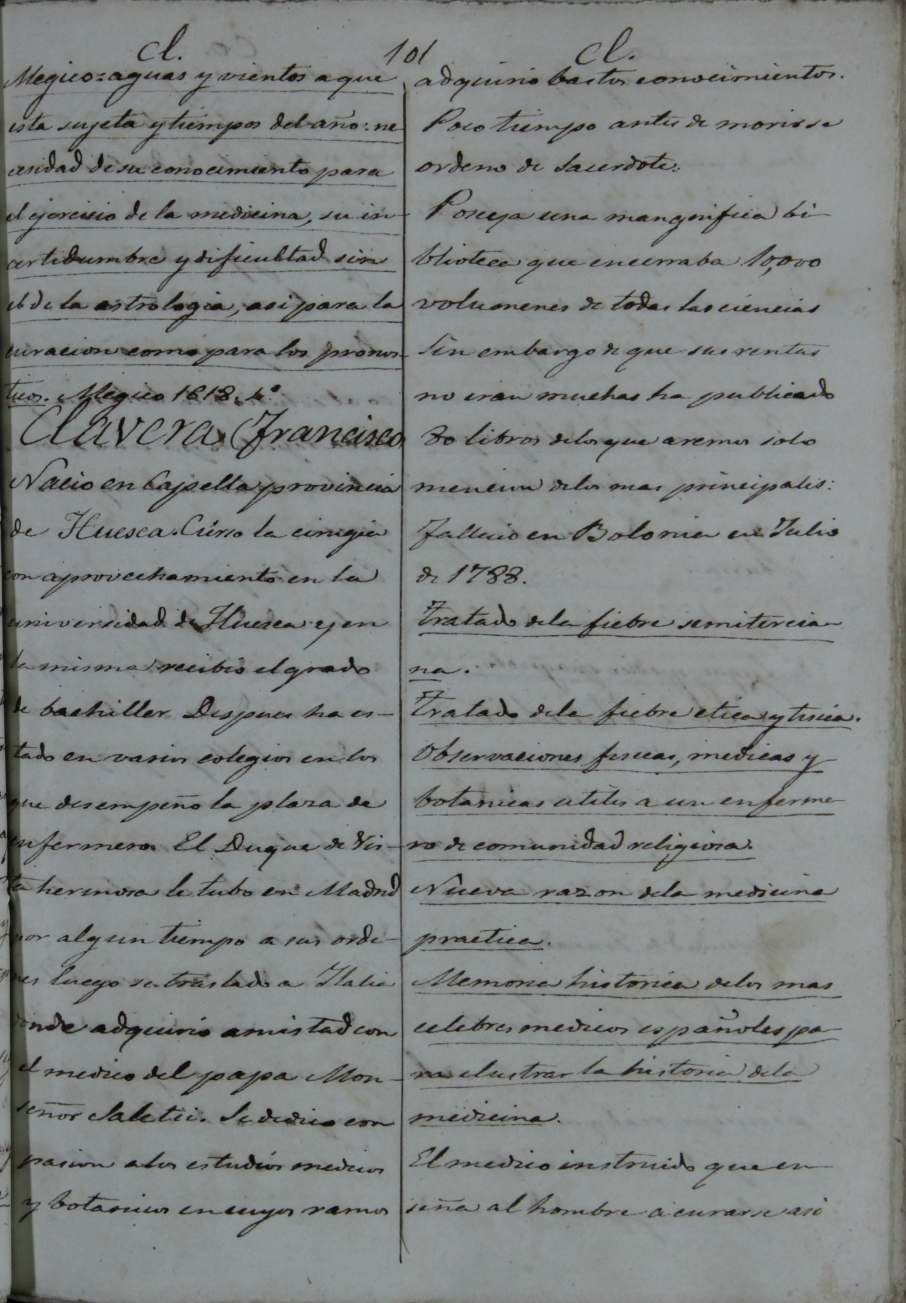 Cl. 101 Cl.
Megico: aguas y vientos a que
esta sujeta y tiempos del año: ne
cesidad de su conocimiento para
el ejercisio de la medicina, su in-
certidumbre y dificultad sin
de la astrologia, asi para la
curacion como para los pronos-
ticos. Megico 1618. 4º
Clavera Francisco
Nacio en Capella provincia
de Huesca. Curso la cirugia
con aprovechamiento en la
universidad de Huesca y en
la misma recibio el grado
de bachiller. Despues ha es-
tado en varios colegios en los
que desempeño la plaza de
enfermero. El Duque de Vis-
ta hermosa le tubo en Madrid
por algun tiempo a sus orde-
nes luego se traslado a Italia
donde adquirio amistad con
el medico del papa Mon-
señor Saletti. Se dedico con
pasion a los estudios medicos
y botanicos en cuyos ramos
adquirio bastos conocimientos.
Poco tiempo antes de morirse
ordeno de Sacerdote.
Poseya una mangnifica bi-
blioteca que encerraba 10,000
volumenes de todas las ciencias
Sin embargo de que sus rentas
no eran muchas ha publicado
80 libros delos que aremos solo
mencion delos mas principales:
Fallecio en Bolonia en Julio
de 1788.
Tratado dela fiebre semitercia-
na.
Tratado dela fiebre etica y tisica.
Observaciones fisicas, medicas y
botanicas utiles a un enferme-
ro de comunidad religiosa.
Nueva razon dela medicina
practica.
Memoria historica delos mas
celebres medicos españoles pa-
ra elustrar la historia dela
medicina.
El medico instruido que en-
seña al hombre a curarse asi